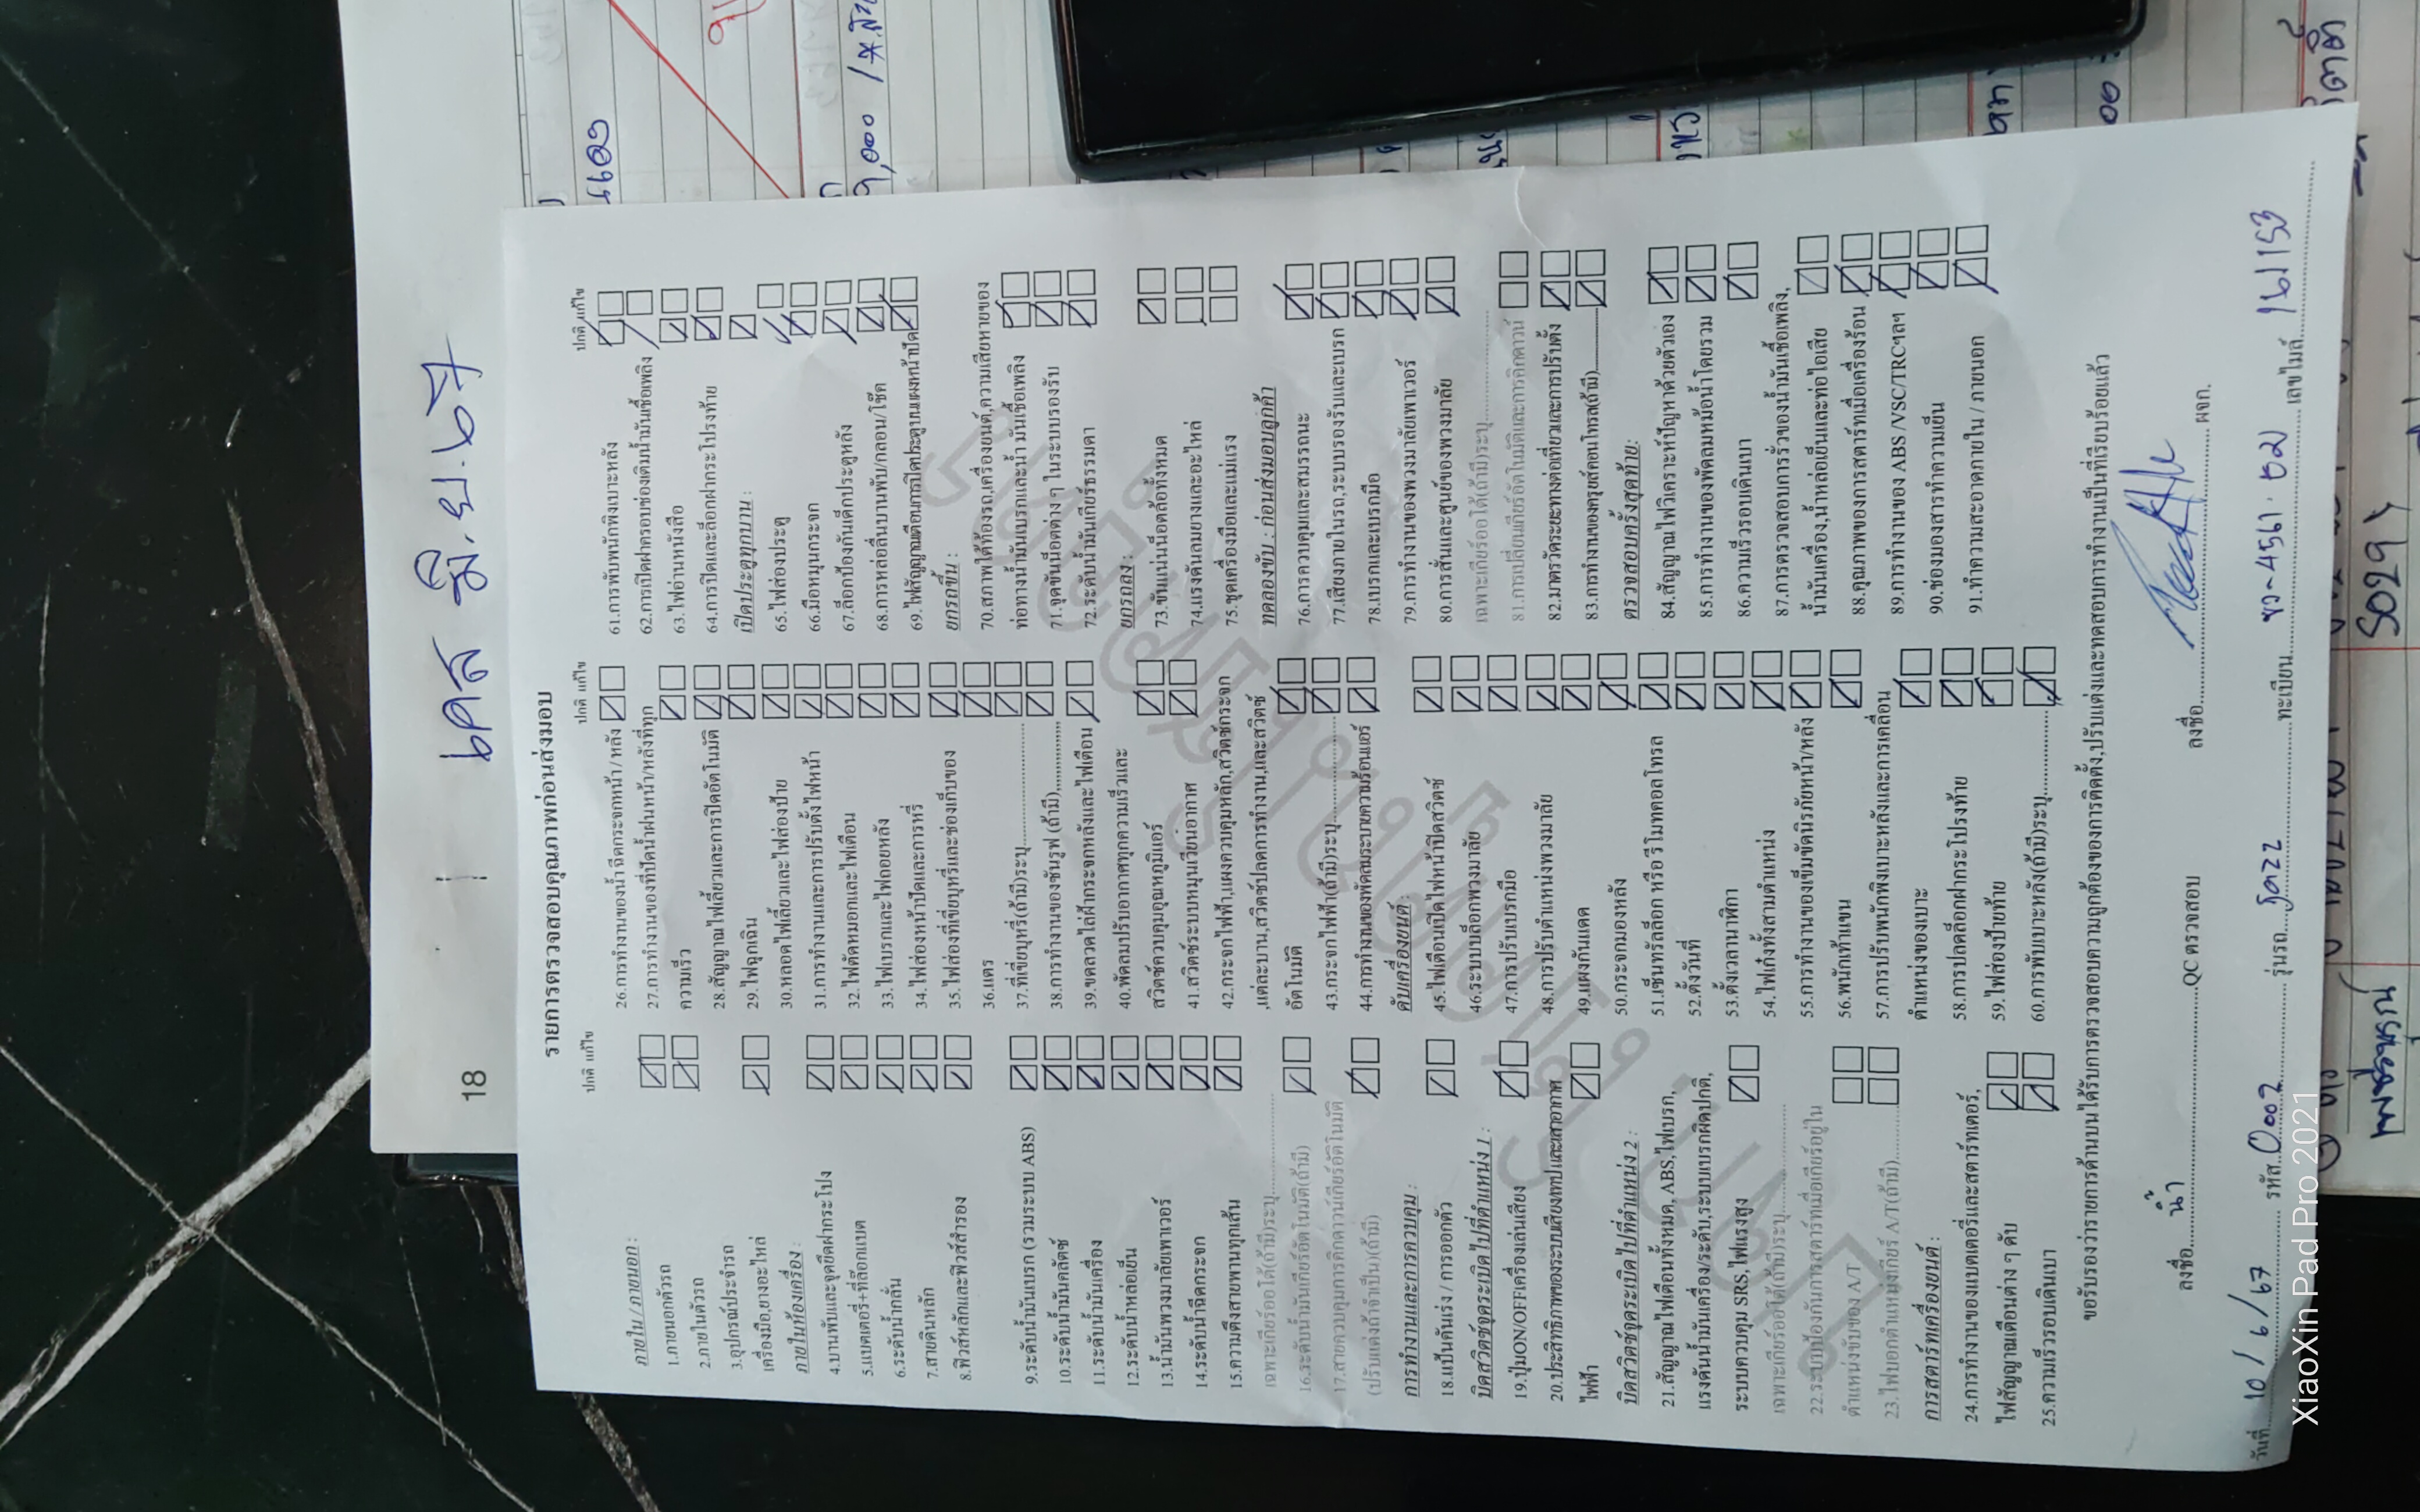 18
เคส มิ.ย.67
รายการตรวจสอบคุณภาพก่อนส่งมอบ
ปกติ แก้ไข
ภายใน / ภายนอก :
1.ภายนอกตัวรถ
2.ภายในตัวรถ
3.อุปกรณ์ประจำรถ
เครื่องมือ,ยางอะไหล่
ภายในห้องเครื่อง :
4.บานพับและจุดยึดฝากระโปรง
5.แบตเตอรี่+ที่ล๊อกแบต
6.ระดับน้ำกลั่น
7.สายดินหลัก
8.ฟิวส์หลักและฟิวส์สำรอง
9.ระดับน้ำมันเบรก (รวมระบบ ABS)
10.ระดับน้ำมันคลัตซ์
11.ระดับน้ำมันเครื่อง
12.ระดับน้ำหล่อเย็น
13.น้ำมันพวงมาลัยเพาเวอร์
14.ระดับน้ำฉีดกระจก
15.ความตึงสายพานทุกเส้น
เฉพาะเกียร์ออโต้(ถ้ามี)ระบุ
16.ระดับน้ำมันเกียร์อัตโนมัติ(ถ้ามี)
17.สายควบคุมการคิกดาวน์เกียร์อัตโนมัติ
(ปรับแต่งถ้าจำเป็น)(ถ้ามี)
การทำงานและการควบคุม :
18.แป้นคันเร่ง / การออกตัว
บิดสวิตช์จุดระเบิดไปที่ตำแหน่ง 1 :
19.ปุ่มON/OFFเครื่องเล่นเสียง
20.ประสิทธิภาพของระบบเสียงเทปและเสาอากาศ
ไฟฟ้า
บิดสวิตช์จุดระเบิดไปที่ตำแหน่ง 2 :
21.สัญญาณไฟเตือนทั้งหมด, ABS,ไฟเบรก,
แรงดันน้ำมันเครื่อง/ระดับ,ระบบเบรกผิดปกติ,
ระบบควบคุม SRS,ไฟแรงสูง
เฉพาะเกียร์ออโต้(ถ้ามี)ระบุ
22.ระบบป้องกันการสตาร์ทเมื่อเกียร์อยู่ใน
ตำแหน่งขับของ A/T
23.ไฟบอกตำแหน่งเกียร์ A/T(ถ้ามี)
การสตาร์ทเครื่องยนต์ :
24.การทำงานของแบตเตอรี่และสตาร์ทเตอร์,
ไฟสัญญาณเตือนต่าง ๆ ดับ
25.ความเร็วรอบเดินเบา
ปกติ แก้ไข
26.การทำงานของน้ำ ฉีดกระจกหน้า / หลัง
27.การทำงานของที่ปัดน้ำฝนหน้า/หลังที่ทุก
ความเร็ว
28.สัญญาณไฟเลี้ยวและการปิดอัตโนมัติ
29.ไฟฉุกเฉิน
30.หลอดไฟเลี้ยวและไฟส่องป้าย
31.การทำงานและการปรับตั้งไฟหน้า
32.ไฟตัดหมอกและไฟเตือน
33.ไฟเบรกและไฟถอยหลัง
34.ไฟส่องหน้าปัดและการหรี่
35.ไฟส่องที่เขี่ยบุหรี่และช่องเก็บของ
36.แตร
37.ที่เขี่ยบุหรี่(ถ้ามี)ระบุ
38.การทำงานของซันรูฟ (ถ้ามี)
39.ขดลวดไล่ฝ้ากระจกหลังและไฟเตือน
40.พัดลมปรับอากาศทุกความเร็วและ
สวิตช์ควบคุมอุณหภูมิแอร์
41.สวิตช์ระบบหมุนเวียนอากาศ
42.กระจกไฟฟ้า,แผงควบคุมหลัก,สวิตช์กระจก
,แต่ละบาน,สวิตช์ปลดการทำงาน,และสวิตช์
อัตโนมัติ
43.กระจกไฟฟ้า(ถ้ามี)ระบุ
44.การทำงานของพัดลมระบายความร้อนแอร์
ดับเครื่องยนต์ :
45.ไฟเตือนเปิดไฟหน้าปิดสวิตช์
46.ระบบล๊อกพวงมาลัย
47.การปรับเบรกมือ
48.การปรับตำแหน่งพวงมาลัย
49.แผงกันแดด
50.กระจกมองหลัง
51.เซ็นทรัลล๊อก หรือ รีโมทคอลโทรล
52.ตั้งวันที่
53.ตั้งเวลานาฬิกา
54.ไฟเก๋งทั้งสามตำแหน่ง
55.การทำงานของเข็มขัดนิรภัยหน้า/หลัง
56.พนักเท้าแขน
57.การปรับพนักพิงเบาะหลังและการเคลื่อน
ตำแหน่งของเบาะ
58.การปลดล๊อกฝากระโปรงท้าย
59.ไฟส่องป้ายท้าย
60.การพับเบาะหลัง(ถ้ามี)ระบุ
ปกติ แก้ไข
61.การพับพนักพิงเบาะหลัง
62.การเปิดฝาครอบช่องเติมน้ำมันเชื้อเพลิง
63.ไฟอ่านหนังสือ
64.การปิดและล๊อกฝากระโปรงท้าย
เปิดประตูทุกบาน :
65.ไฟส่องประตู
66.มือหมุนกระจก
67.ล็อกป้องกันเด็กประตูหลัง
68.การหล่อลื่นบานพับ/กลอน/โช๊ค
69.ไฟสัญญาณเตือนการปิดประตูบนแผงหน้าปัด
ยกรถขึ้น :
70.สภาพใต้ท้องรถ,เครื่องยนต์,ความเสียหายของ
ท่อทางน้ำมันเบรกและน้ำ มันเชื้อเพลิง
71.จุดขันน็อตต่าง ๆ ในระบบรองรับ
72.ระดับน้ำมันเกียร์ธรรมดา
ยกรถลง :
73.ขันแน่นน็อตล้อทั้งหมด
74.แรงดันลมยางและอะไหล่
75.ชุดเครื่องมือและแม่แรง
ทดลองขับ : ก่อนส่งมอบลูกค้า
76.การควบคุมและสมรรถนะ
77.เสียงภายในรถ,ระบบรองรับและเบรก
78.เบรกและเบรกมือ
79.การทำงานของพวงมาลัยเพาเวอร์
80.การสั่นและศูนย์ของพวงมาลัย
เฉพาะเกียร์ออโต้(ถ้ามี)ระบุ
81.การเปลี่ยนเกียร์อัตโนมัติและการคิกดาวน์
82.มาตรวัดระยะทางต่อเที่ยวและการปรับตั้ง
83.การทำงานของครุยส์คอนโทรล(ถ้ามี)
ตรวจสอบครั้งสุดท้าย:
84.สัญญาณไฟวิเคราะห์ปัญหาด้วยตัวเอง
85.การทำงานของพัดลมหม้อน้ำโดยรวม
86.ความเร็วรอบเดินเบา
87.การตรวจสอบการรั่วของน้ำมันเชื้อเพลิง,
น้ำมันเครื่อง,น้ำหล่อเย็นและท่อไอเสีย
88.คุณภาพของการสตาร์ทเมื่อเครื่องร้อน
89.การทำงานของ ABS /VSC/TRCฯลฯ
90.ช่องมองสารทำความเย็น
91.ทำความสะอาดภายใน / ภายนอก
ขอรับรองว่ารายการด้านบนได้รับการตรวจสอบความถูกต้องของการติดตั้ง,ปรับแต่งและทดสอบการทำงานเป็นที่เรียบร้อยแล้ว
ลงชื่อ น้ำ QC ตรวจสอบ ลงชื่อ ผจก.
วันที่ 10/6/67 รหัส 0002 รุ่นรถ รุ่นJazz ทะเบียน ชว-4561 ชม เลขไมล์ 161153
5029
9,000
XiaoXin Pad Pro 2021